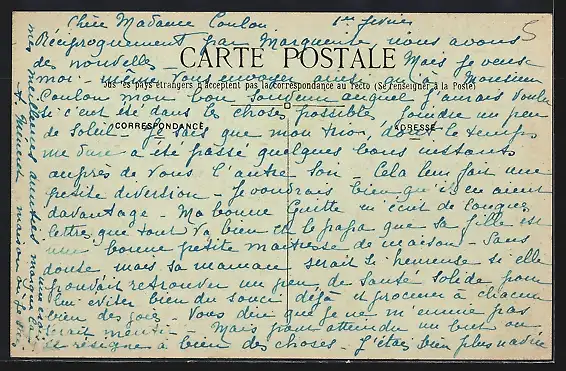 Chère Madame Coulon 1er fevrier
5
Réciproquement par Marguerite nous avons
des nouvelles - Mais je veux
CARTE POSTALE
moi-même vous envoyer ainsi qu'à Monsieur
Tous les pays étrangers n'acceptent pas la correspondance au recto (Se renseigner à la Poste)
Coulon mon bon souvenir auquel j'aurais voulu
si c'eut été dans les choses possibles, joindre un peu
CORRESPONDANCE
ADRESSE
de soleil. Je sais que mon trio, dont le temps
me dure a été passé quelques bons instants
auprès de vous l'autre soir - Cela leur fait une
petite diversion - Je voudrais bien qu'ils en aient
davantage - Ma bonne Guitte m'écrit de longues
lettres que tout va bien et le papa que sa fille est
une bonne petite maitresse de maison - Sans
doute mais sa maman serait si heureuse si elle
pouvait retrouver un peu de santé solide pour
lui éviter bien du souci déjà et procurer à chacun
bien des joies - Vous dire que je ne m'ennuie pas
serait mentir - Mais pour atteindre un but on
se résigne à bien des choses - J'étais bien plus